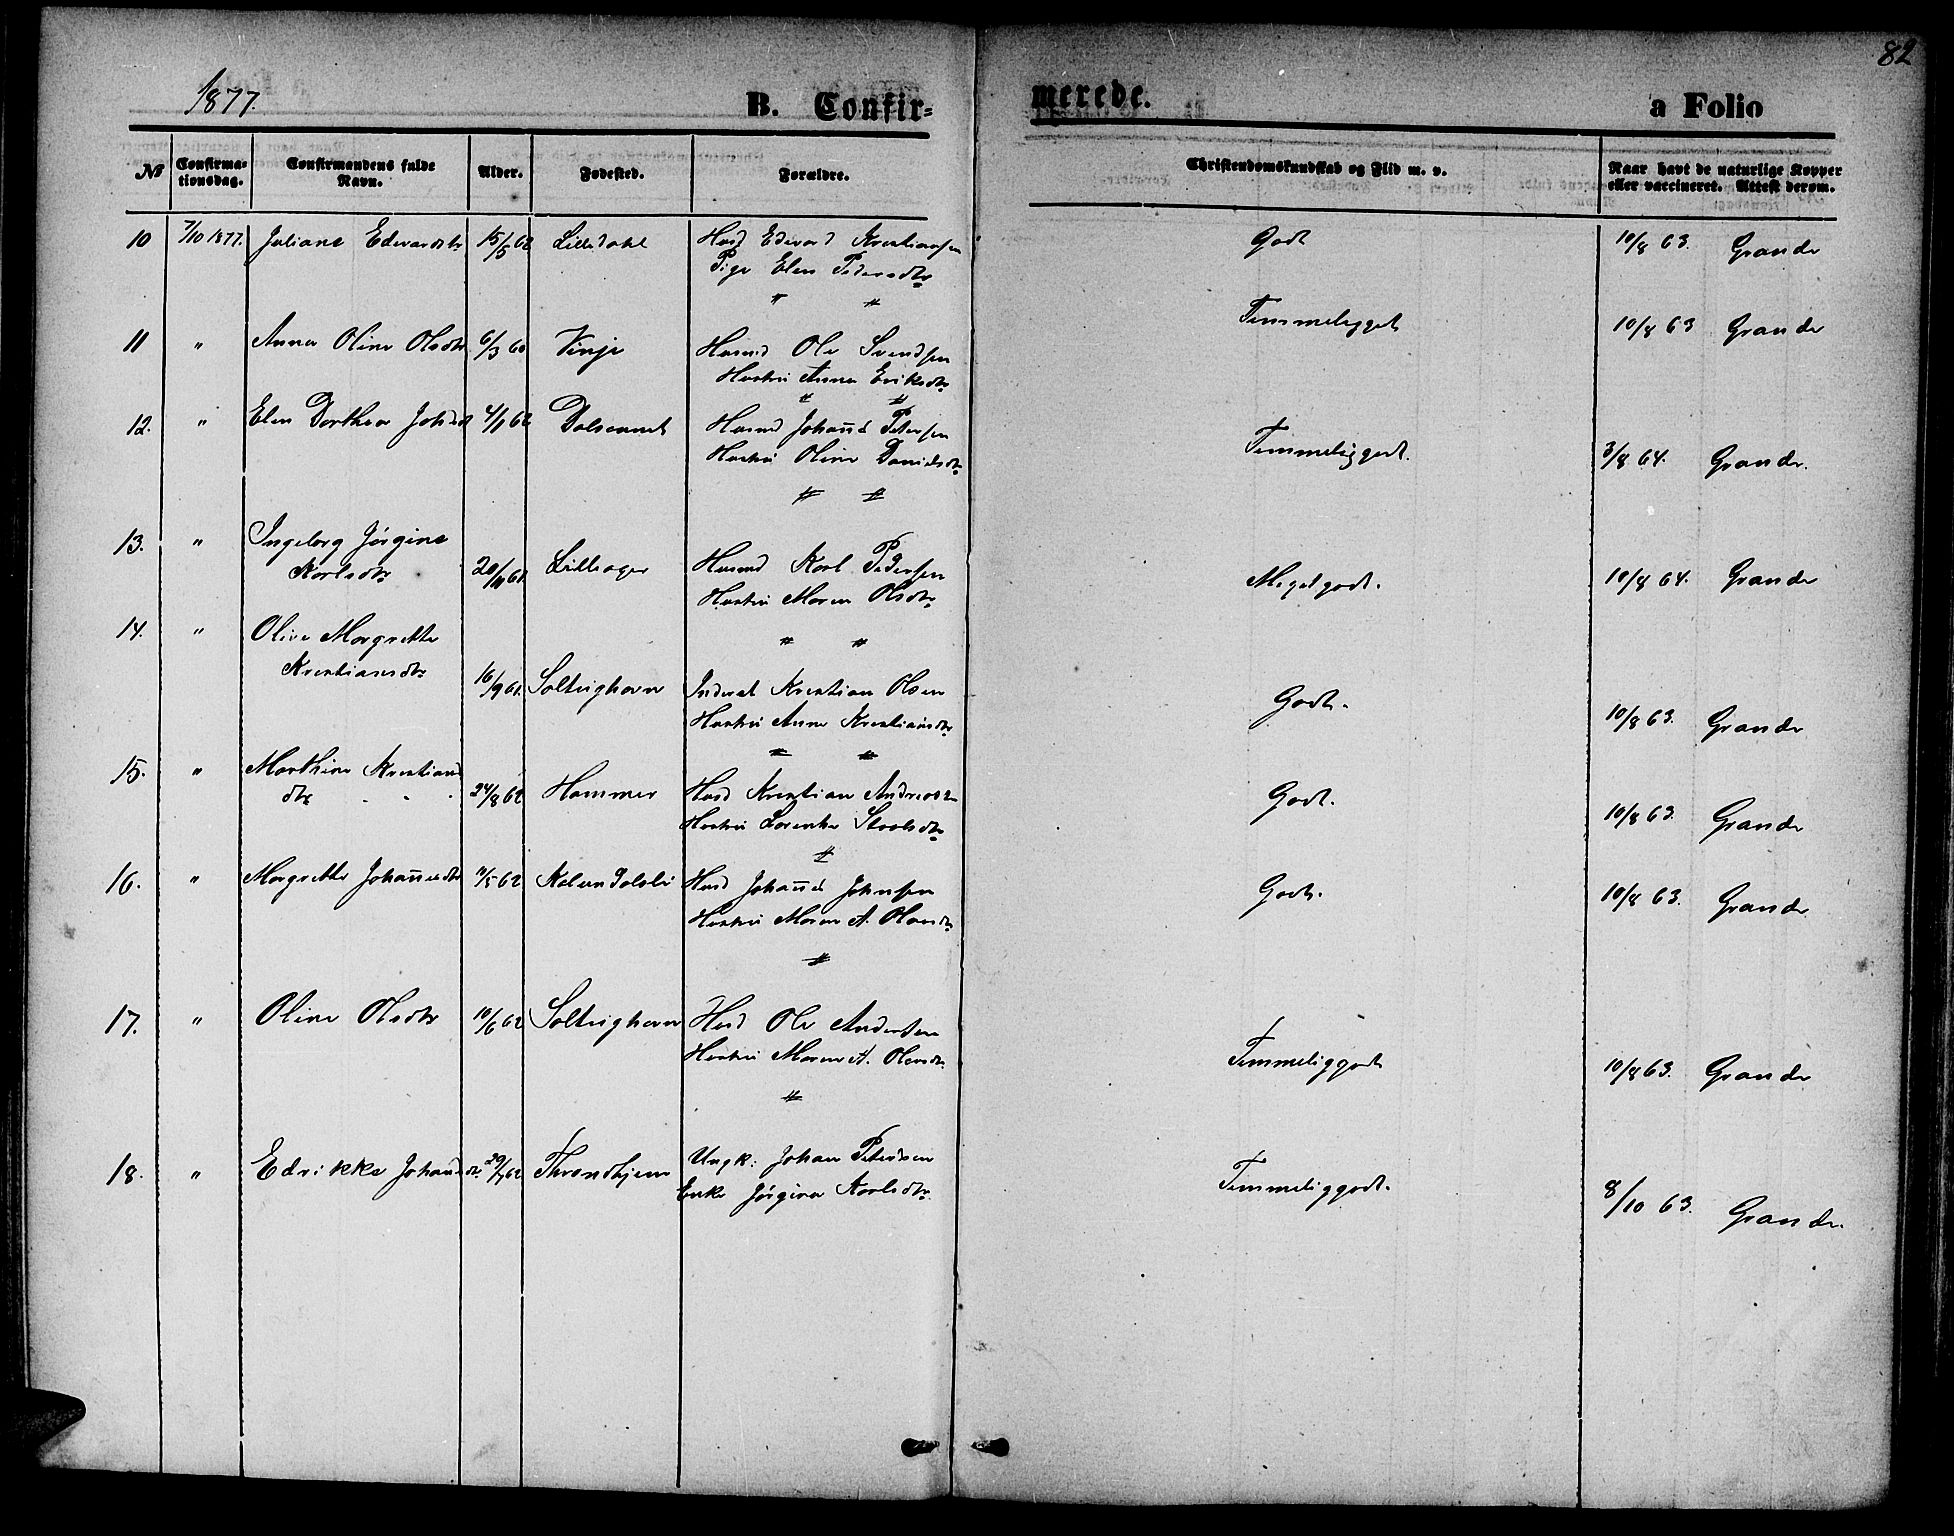 82
1877.
B. Confir=
merede.
a Folio
No
Confirma-
tionsdag.
Confirmandens fulde
Navn.
Alder.
Fødested.
Forældre.
Christendomskundskab og Flid m. v.
Naar havt de naturlige Kopper
eller vaccineret. Attest derom.
10 7/10 1877. Juliane Edvardsdtr 15/5 62 Lilledahl Husd Edvard Kristiansen Godt 10/8 63. Grande
Pige Elen Pedersdtr
" "
11 " Anna Oline Olsdtr 6/3 60 Vinje Husmd Ole Svendsen Temmeliggodt 10/8 63 Grande
Hustru Anna Eriksdtr
" "
12. " Elen Dorthea Johsd 4/1 62 Husmd Johans Petersen Temmeliggodt. 3/8 64. Grande.
Hustru Oline Danielsdtr
" "
13. " Ingeborg Jørgine
Karlsdtr 20/11 61. Lilleager Husmd Karl Pedersen Megetgodt. 10/8 64. Grande
Hustru Maren Olsdtr
14. " Oline Margrette " "
Kristiansdtr 16/9 61. Inderst Kristian Olsen Godt. 10/8 63. Grande
Hustru Anne Kristiansdtr
" "
15. " Marthine Kristians
dtr 24/8 62 Hammer Husd Kristian Andreas Godt. 10/8 63. Grande
Hustru Lorentse
"
16. " Margrette Johansdtr 11/5 62 Husd Johans Johnsen Godt. 10/8 63. Grande
Hustru Maren A. Olausdtr
"
17. " Oline Olsdtr 10/6 62 Husd Ole Andersen Temmeliggodt 10/8 63. Grande
Hustru Maren A. Olausdtr.
"
18. " Edrikke Johansdtr. 29/7 62 Throndhjem Ungk: Johan Petersen Temmeliggodt. 8/10 63. Grande.
Enke Jørgine Karlsdtr.